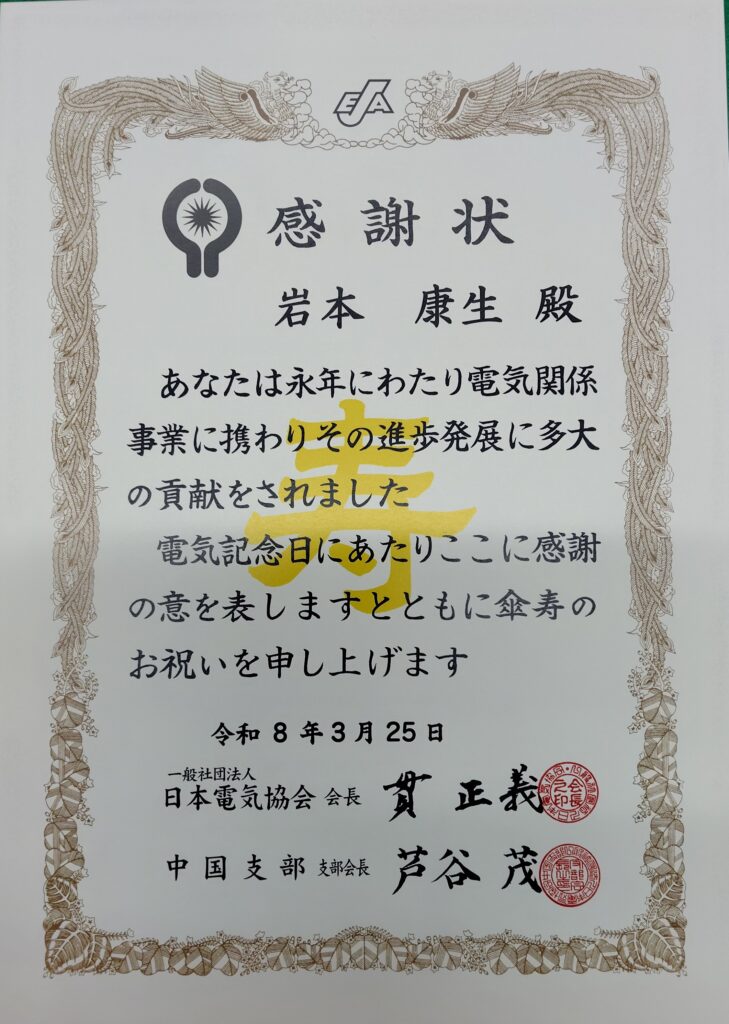 EJA
感謝状
岩本 康生 殿
あなたは永年にわたり電気関係
事業に携わりその進歩発展に多大
の貢献をされました
電気記念日にあたりここに感謝
の意を表しますとともに傘寿の
お祝いを申し上げます
寿
令和8年3月25日
一般社団法人
日本電気協会 会長 貫 正義
中国支部 支部会長 芦谷 茂